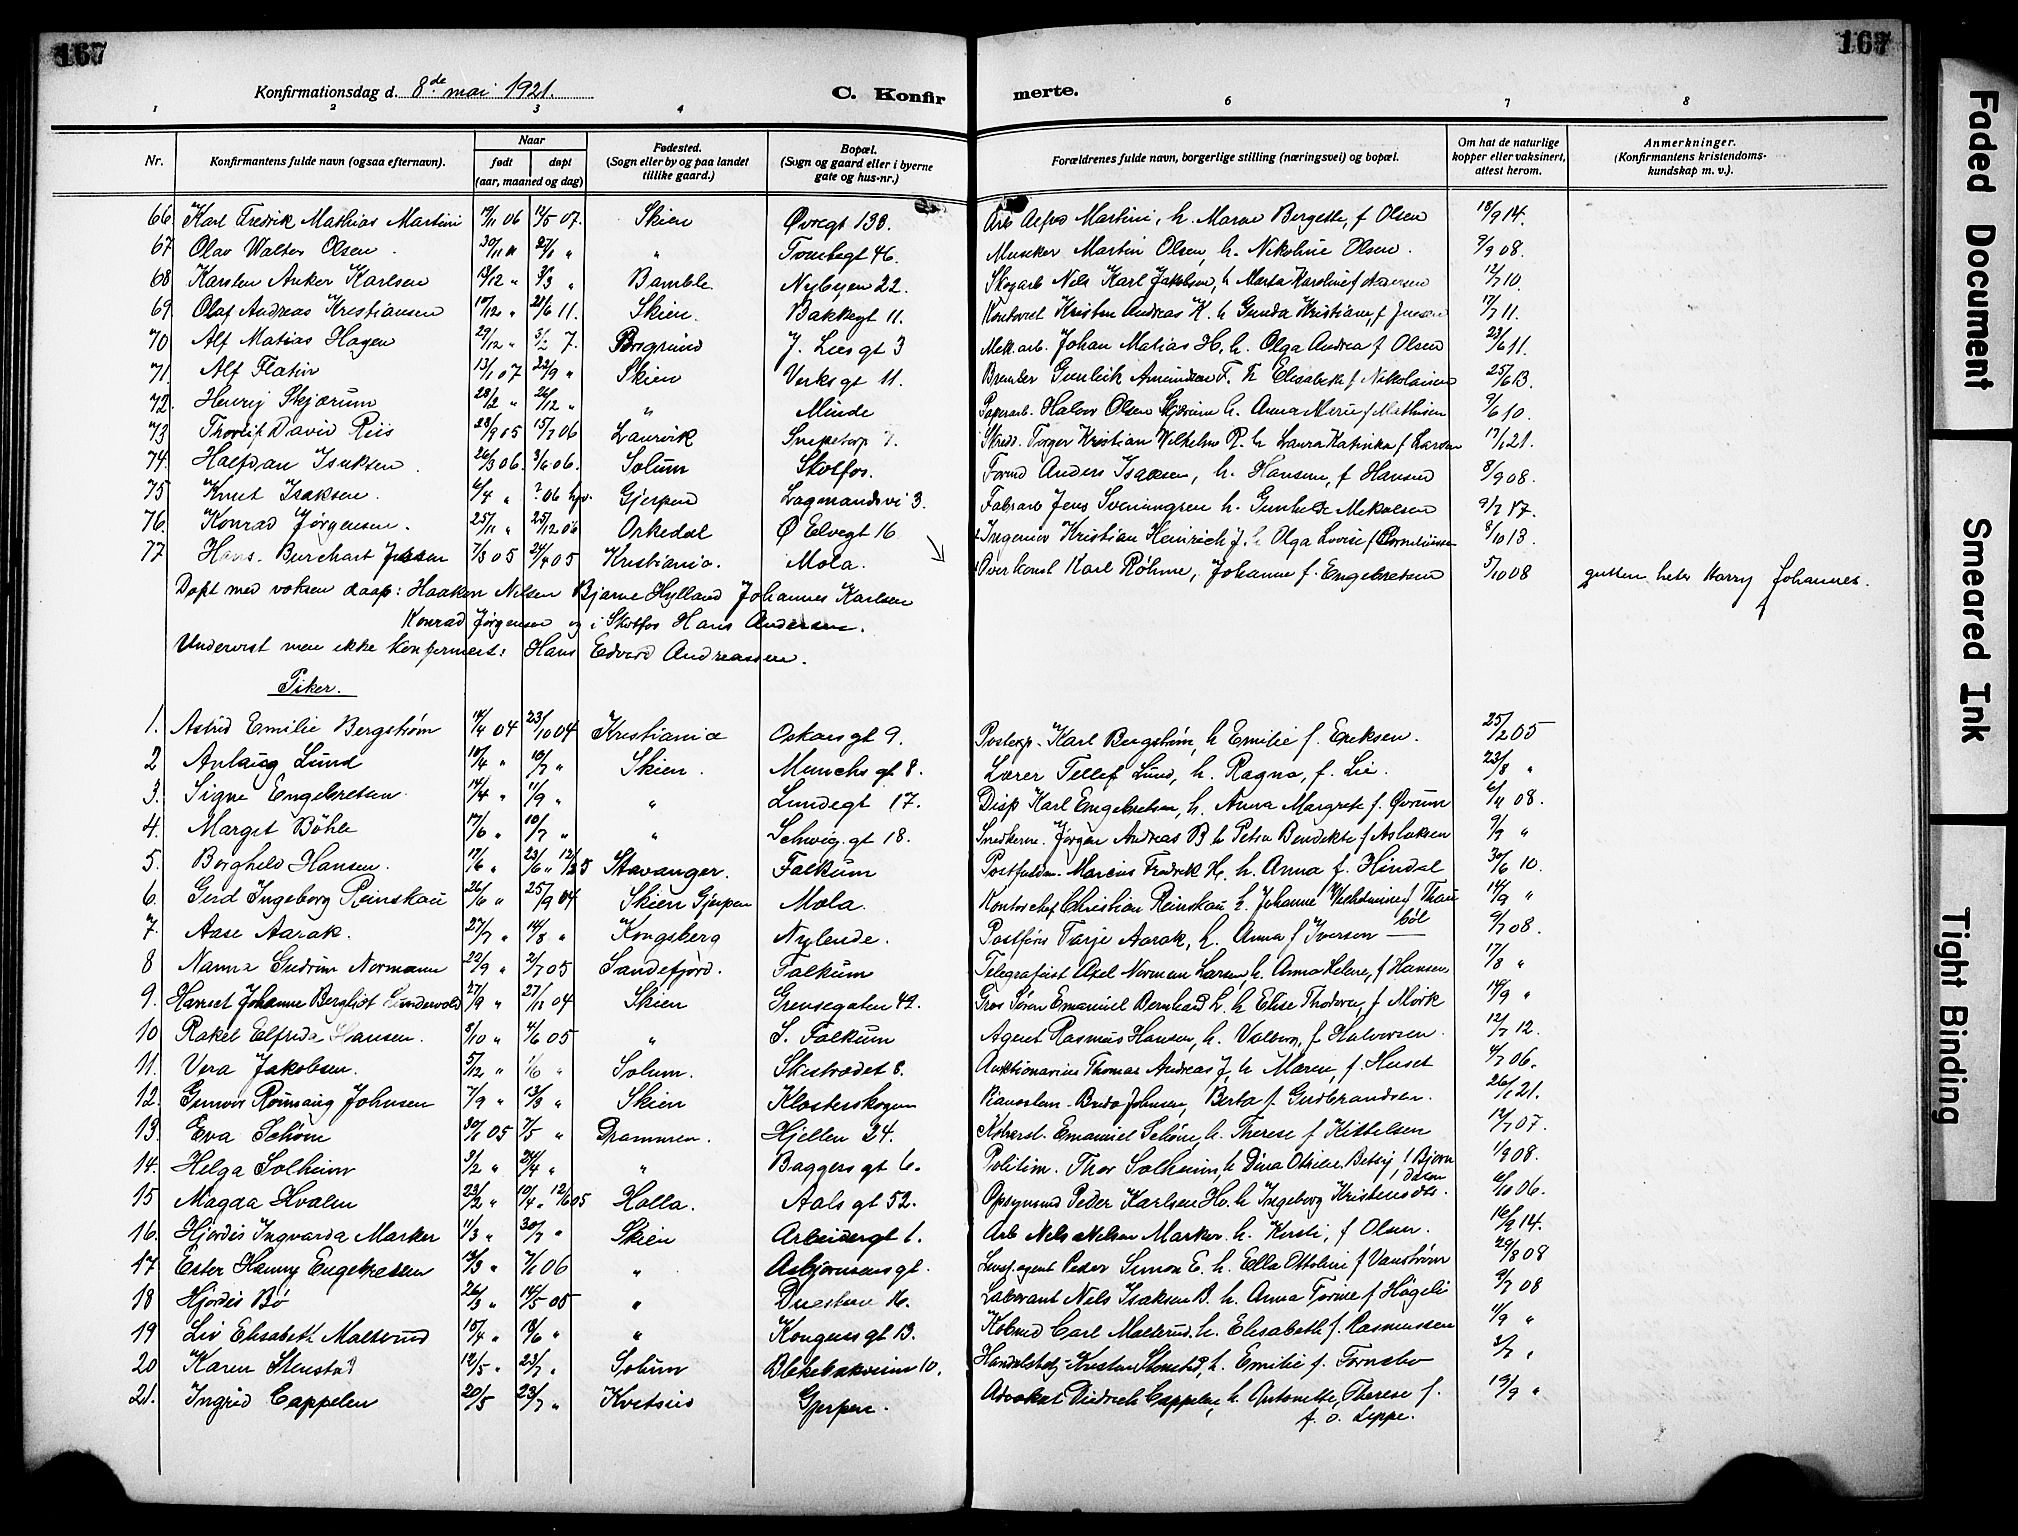 167
167
Konfirmationsdag d. 8de mai 1921.
C. Konfirmerte.
1 2 3 4 6 7 8
Nr.
Konfirmantens fulde navn (ogsaa efternavn).
Naar
født
døpt
(aar, maaned og dag)
Fødested.
(Sogn eller by og paa landet
tillike gaard.)
Bopæl.
(Sogn og gaard eller i byerne
gate og hus-nr.)
Forældrenes fulde navn, borgerlige stilling (næringsvei) og bopæl.
Om hat de naturlige
kopper eller vaksinert,
attest herom.
Anmerkninger.
(Konfirmantens kristendoms-
kundskap m. v.).
66 Karl Fredrik Mathias Martini 06 07. Skien Øvregt 138. Arb Martini, h. Maren Bergette, f Olsen 18/9 14.
67 Olav Walter Olsen 30/11 " " Tomtegt 46. Musiker Martin Olsen, h. Nikoline Olsen. 9/9 08.
68 Karsten Anker Karlsen 13/12 " 3/3 " Bamble. Nybyen 22. Skogarb Nels Karl Jakobsen, h Marta Karoline f 12/7 10.
69 Olaf Andreas Kristiansen " 21/6 11. Skien. Bakkegt 11. Kontorist Kristen Andreas K. h Gunda Kristiane, f Jensen 17/7 11.
70 Alf Matias Hagen 29/12 " 3/2 7. Porsgrund J. Lies gt 3 Mek. arb. Johan Matias H, h. Olga Andrea f Olsen 23/6 11.
71. Alf Flatin 13/1 07 22/9 " Skien Verks gt 11. Gunleik Amundsen F. h Elisabeth f Nikolaisen 25/6 13.
72. Henrij Skjærum 28/2 " 26/12 " " Minde Paperarb. Halvor Olsen Skjærum h. Anna Marie f Mathisen 9/6 10.
73 Thorleif David Riis 28/9 05 15/7 06 Laurvik Snipetorp 7. Skred. Torger Kristian Wilhelm R. h Laura Katinka f Larsen 17/1 21.
74. Halfdan Isaksen 26/3 06. 3/6 06. Solum Skotfos. Formd Anders Isaksen, h. Hansine, f Hansen 8/9 08.
75 Knut Isaksen. 6/4 " ? 06 hj. Gjerpen Lagmandsvi 3. Fabrarb Jens Sveningsen h. Gunhilde Mikalsen 9/7 17.
76. Konrad Jørgensen. 25/11 " 25/12 06 Orkedal Ø Elvegt 16 2 Ingeniør Kristian Heinrich J. h Olga Lovise f Cornelius 8/10 13.
77 Hans. Burchart Jensen 7/3 05 24/4 05 Kristiania. Mola. 1 Karl Röhme, Johanne f. Engebretsen 5/10 08 gutten heter Harry Johannes.
Døpt med voksen daap: Haakon Nilsen Bjarne Hylland Johannes Karlsen
Konrad Jørgensen og i Skotfos Hans Andersen.
Undervist men ikke konfirmert: Hans Edvard Andreassen.
Piker.
1. Astrid Emilie Bergstrøm 14/4 04 23/10 04 Kristiania Oskars gt 9. Postexp. Karl Bergstrøm, h Emilie f. Eriksen. 25/2 05
2 Anlaug Lund 10/4 " 10/7 " Skien. Munchs gt 8. Lærer Tellef Lund, h. Ragna, f. Lie. 23/8 "
3. Signe Engebretsen 14/4 " 11/9 " " Lundegt 17. Disp Karl Engebretsen, h. Anna Margrete f. Øvrum 6/11 08.
4. Margit Böhle 17/6 " 10/7 " " Schwig. gt 18. Snedkerm. Jørgen Andreas B h Petra Bendikte f Aslaksen 9/9 "
5. Borghild Hansen. 17/6 " 23/6 " Stavanger. Falkum Postfuldm. Marius Fredrik H. h. Anna f. Hindal 30/6 10.
6. Gerd Ingeborg Reinskau 26/6 " 25/9 04 Skien Gjerpen Mola. Kontorchef Christian Reinskau h. Johanne Wilhelmine f Thau
bøl 14/9 "
7. Aase Aarak. 27/7 " 14/8 " Kongsberg Nylende. Postførs Tarje Aarak, h. Anna f Iverson 9/7 08.
8 Nanna Gudrun Normann 22/9 " 2/7 05 Sandefjord. Falkum Telegrafist Axel Norman Larsen, h. Anna Helene, f Hansen 17/8 "
9. Harriet Johanne Berghist 27/9 " 27/11 04 Skien Grensegaten 42. Gros Søren Emanuel Bernhard L. h. Elise Thodora, f Mörk 14/9 "
10 Rakel Elfrida Hansen. 8/10 " 4/6 05 " S. Falkum Agent Rasmus Hansen, h. Valborg, f Halvorsen. 12/7 12.
11. Vera Jakobsen. 5/12 " " Solum. Skistredet 8. Auktionarius Thomas Andreas J, h Maren, f Huset 4/7 06.
12. Gunvor Rönnaug Johnsen 7/9 " 13/3 " Skien Klosterskogen Johnsen, Berta f. Gudbrandsen. 26/1 21.
13. Eva Schøm 30/1 05 7/5 " Drammen. Hjellen 24. Emanuel Schøm, h. Therese f Kittelsen 12/7 07.
14. Helga Solheim 3/2 " 24/4 " " Baggers gt 6. Politim. Thor Solheim, h Dina Otilie Betsy f Bjørn
dalen 1/9 08.
15 Magda Hvalen 23/2 " 10/4 " Holla. Aals gt 52. Opsynsmd Peder Karlsen Hv. h Ingeborg Kristensdtr. 6/10 06.
16. Hjørdis Ingvarda Marker 11/3 " 30/7 " Skien Arbeidergt 1. Arb Nels Nelsen Marker h. Kersti, f Olsen. 16/9 14.
17. Ester Hanny Engebretsen 13/3 " 7/1 06 " Asbjørnsens gt. Livsf.agent Peder Simon E. h. Ella Ottoline f Vanstrøm 29/8 08
18 Hjørdis Bø 26/3 " 14/5 05 " 16. Laborant Nels Isaksen B. h. Anna Torine f Høgeli 9/7 08
19 Liv Elisabeth Malterud 15/4 " 18/6 " " Kongens gt 13. Købmd Carl Malterud, h. Elisabeth f. Rasmussen 11/9 "
20 Karen Stenstad 12/5 " 23/7 " Solum Blekebakveien 10. Handelsbetj. Kristen Stenstad, h. Emilie f. Tornsbo 2/7 "
21. Ingrid Cappelen 20/5 23/7 " Kvitseid Gjerpen. Advokat Diedrich Cappelen, h. Antonette, Therese f.
f. o. Lippe. 19/9 "
Faded Document
Smeared Ink
Tight Binding